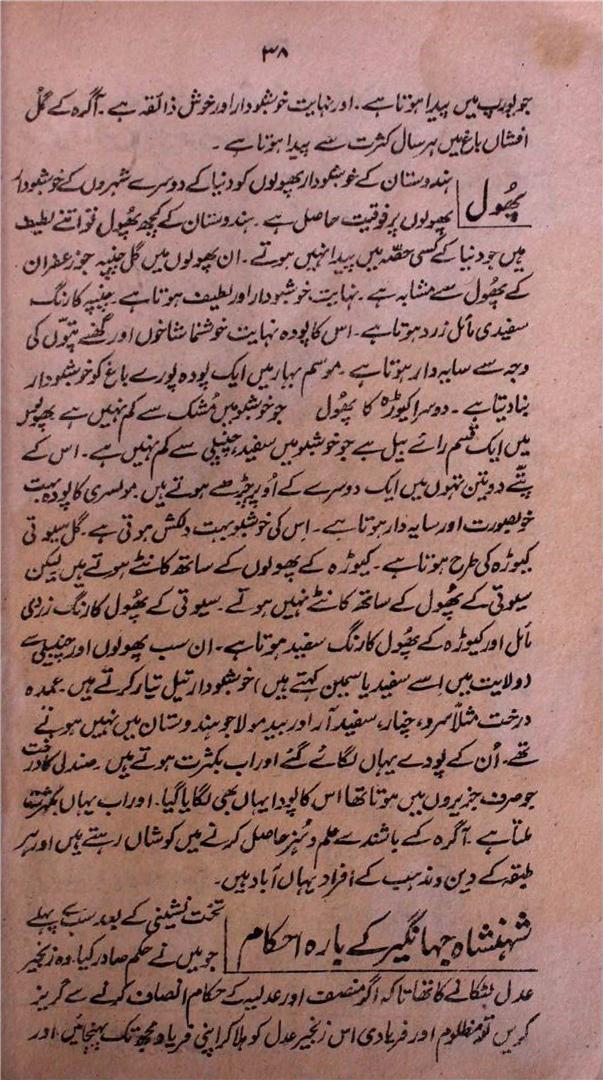 ۳۸
جو یورپ میں پیدا ہوتا ہے۔ اور نہایت خوشبودار اور خوش ذائقہ ہے۔ آگرہ کے گل
افشاں باغ میں ہر سال کثرت سے پیدا ہوتا ہے۔
پھُول
ہندوستان کے خوشبودار پھولوں کو دنیا کے دوسرے شہروں کے خوشبودار
پھولوں پر فوقیت حاصل ہے۔ ہندوستان کے کچھ پھول تو اتنے لطیف
ہیں جو دنیا کے کسی حصّہ میں پیدا نہیں ہوتے۔ ان پھولوں میں گل چنپہ جو زعفران
کے پھُول سے مشابہ ہے۔ نہایت خوشبودار اور لطیف ہوتا ہے۔ چنپہ کا رنگ
سفیدی مائل زرد ہوتا ہے۔ اس کا پودہ نہایت خوشنما شاخوں اور گھنے پتوں کی
وجہ سے سایہ دار ہوتا ہے۔ موسم بہار میں ایک پودہ پورے باغ کو خوشبودار
بنا دیتا ہے۔ دوسرا کیوڑہ کا پھُول جو خوشبو میں مُشک سے کم نہیں ہے پھولوں
میں ایک قسم رائے بیل ہے جو خوشبو میں سفید چنبیلی سے کم نہیں ہے۔ اس کے
پتّے دو تین تہوں میں ایک دوسرے کے اُوپر چڑھے ہوتے ہیں۔ مولسری کا پودہ بہت
خوبصورت اور سایہ دار ہوتا ہے۔ اس کی خوشبو بہت دلکش ہوتی ہے۔ گل سیوتی
کیوڑہ کی طرح ہوتا ہے۔ کیوڑہ کے پھولوں کے ساتھ کانٹے ہوتے ہیں لیکن
سیوتی کے پھُول کے ساتھ کانٹے نہیں ہوتے۔ سیوتی کے پھُول کا رنگ زردی
مائل اور کیوڑہ کے پھُول کا رنگ سفید ہوتا ہے۔ ان سب پھولوں اور چنبیلی سے
(ولایت میں اِسے سفید یاسمین کہتے ہیں) خوشبودار تیل تیار کرتے ہیں۔ عمدہ
درخت مثلاً سرو، چنار، سفید آر اور بید مولا جو ہندوستان میں نہیں ہوتے
تھے۔ اُن کے پودے یہاں لگائے گئے اور اب بکثرت ہوتے ہیں۔ صندل کا درخت
جو صرف جزیروں میں ہوتا تھا اس کا پودا یہاں بھی لگایا گیا۔ اور اب یہاں بکثرت
ملتا ہے۔ آگرہ کے باشندے علم و ہنر حاصل کرنے میں کوشاں رہتے ہیں اور ہر
طبقہ کے دین و مذہب کے افراد یہاں آباد ہیں۔
شہنشاہ جہانگیر کے بارہ احکام
تخت نشینی کے بعد سب سے پہلے
جو میں نے حکم صادر کیا۔ وہ زنجیر
عدل لٹکانے کا تھا تاکہ اگر منصف اور عدلیہ کے حکام انصاف کرنے سے گریز
کریں تو مظلوم اور فریادی اس زنجیر عدل کو ہلا کر اپنی فریاد مجھ تک پہنچائیں اور